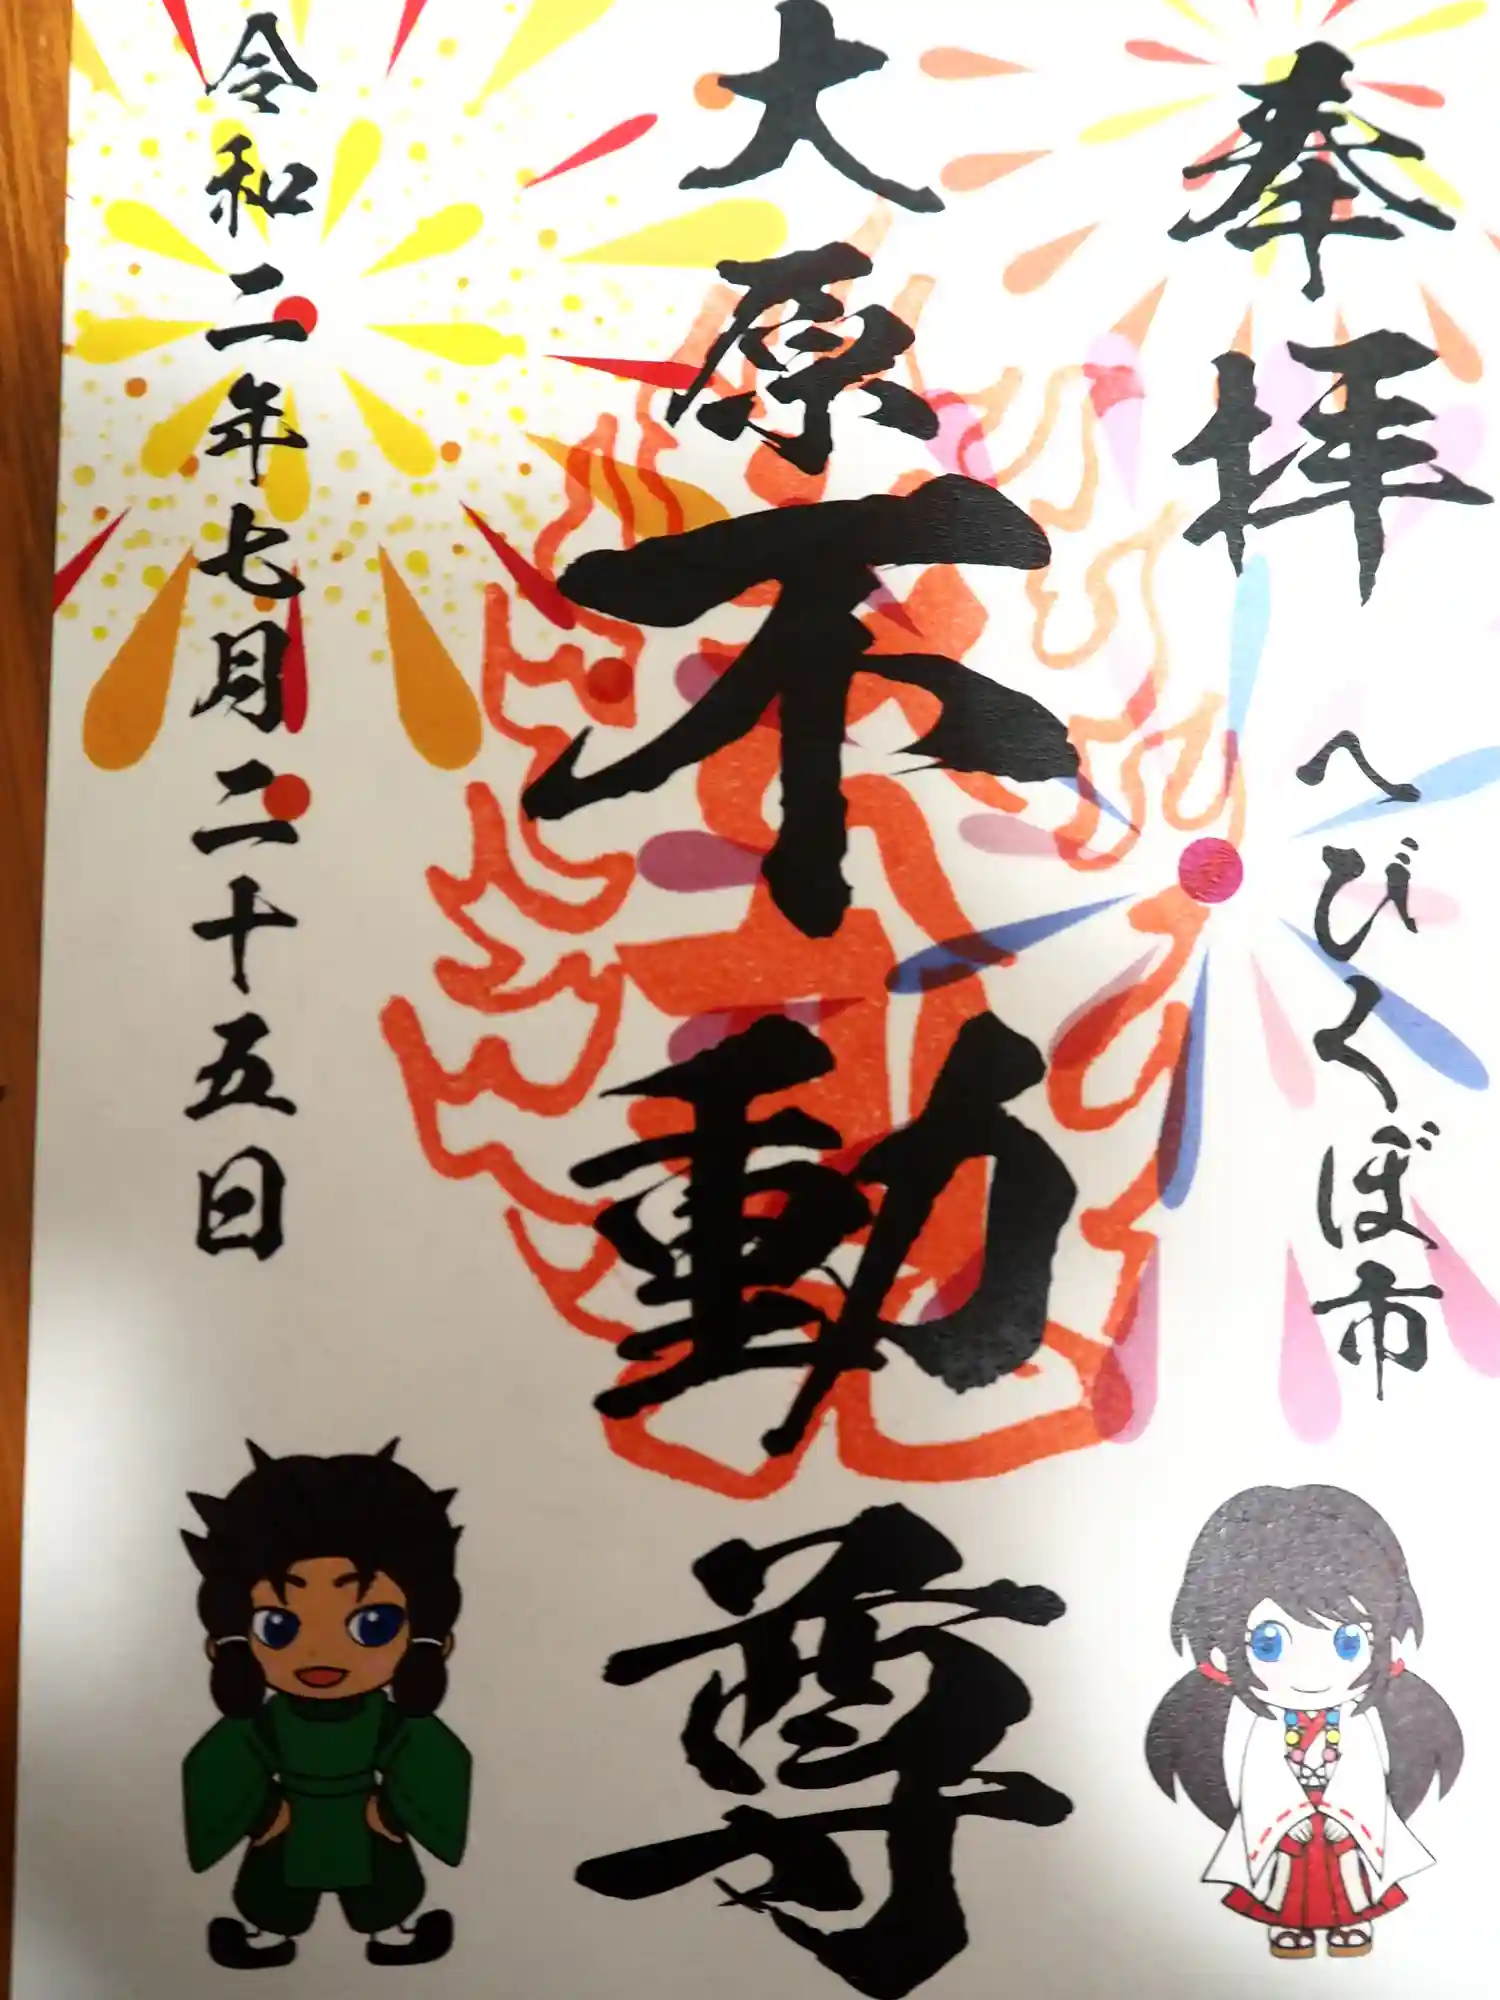 奉拝　へびくぼ市
大原不動尊
令和二年七月二十五日